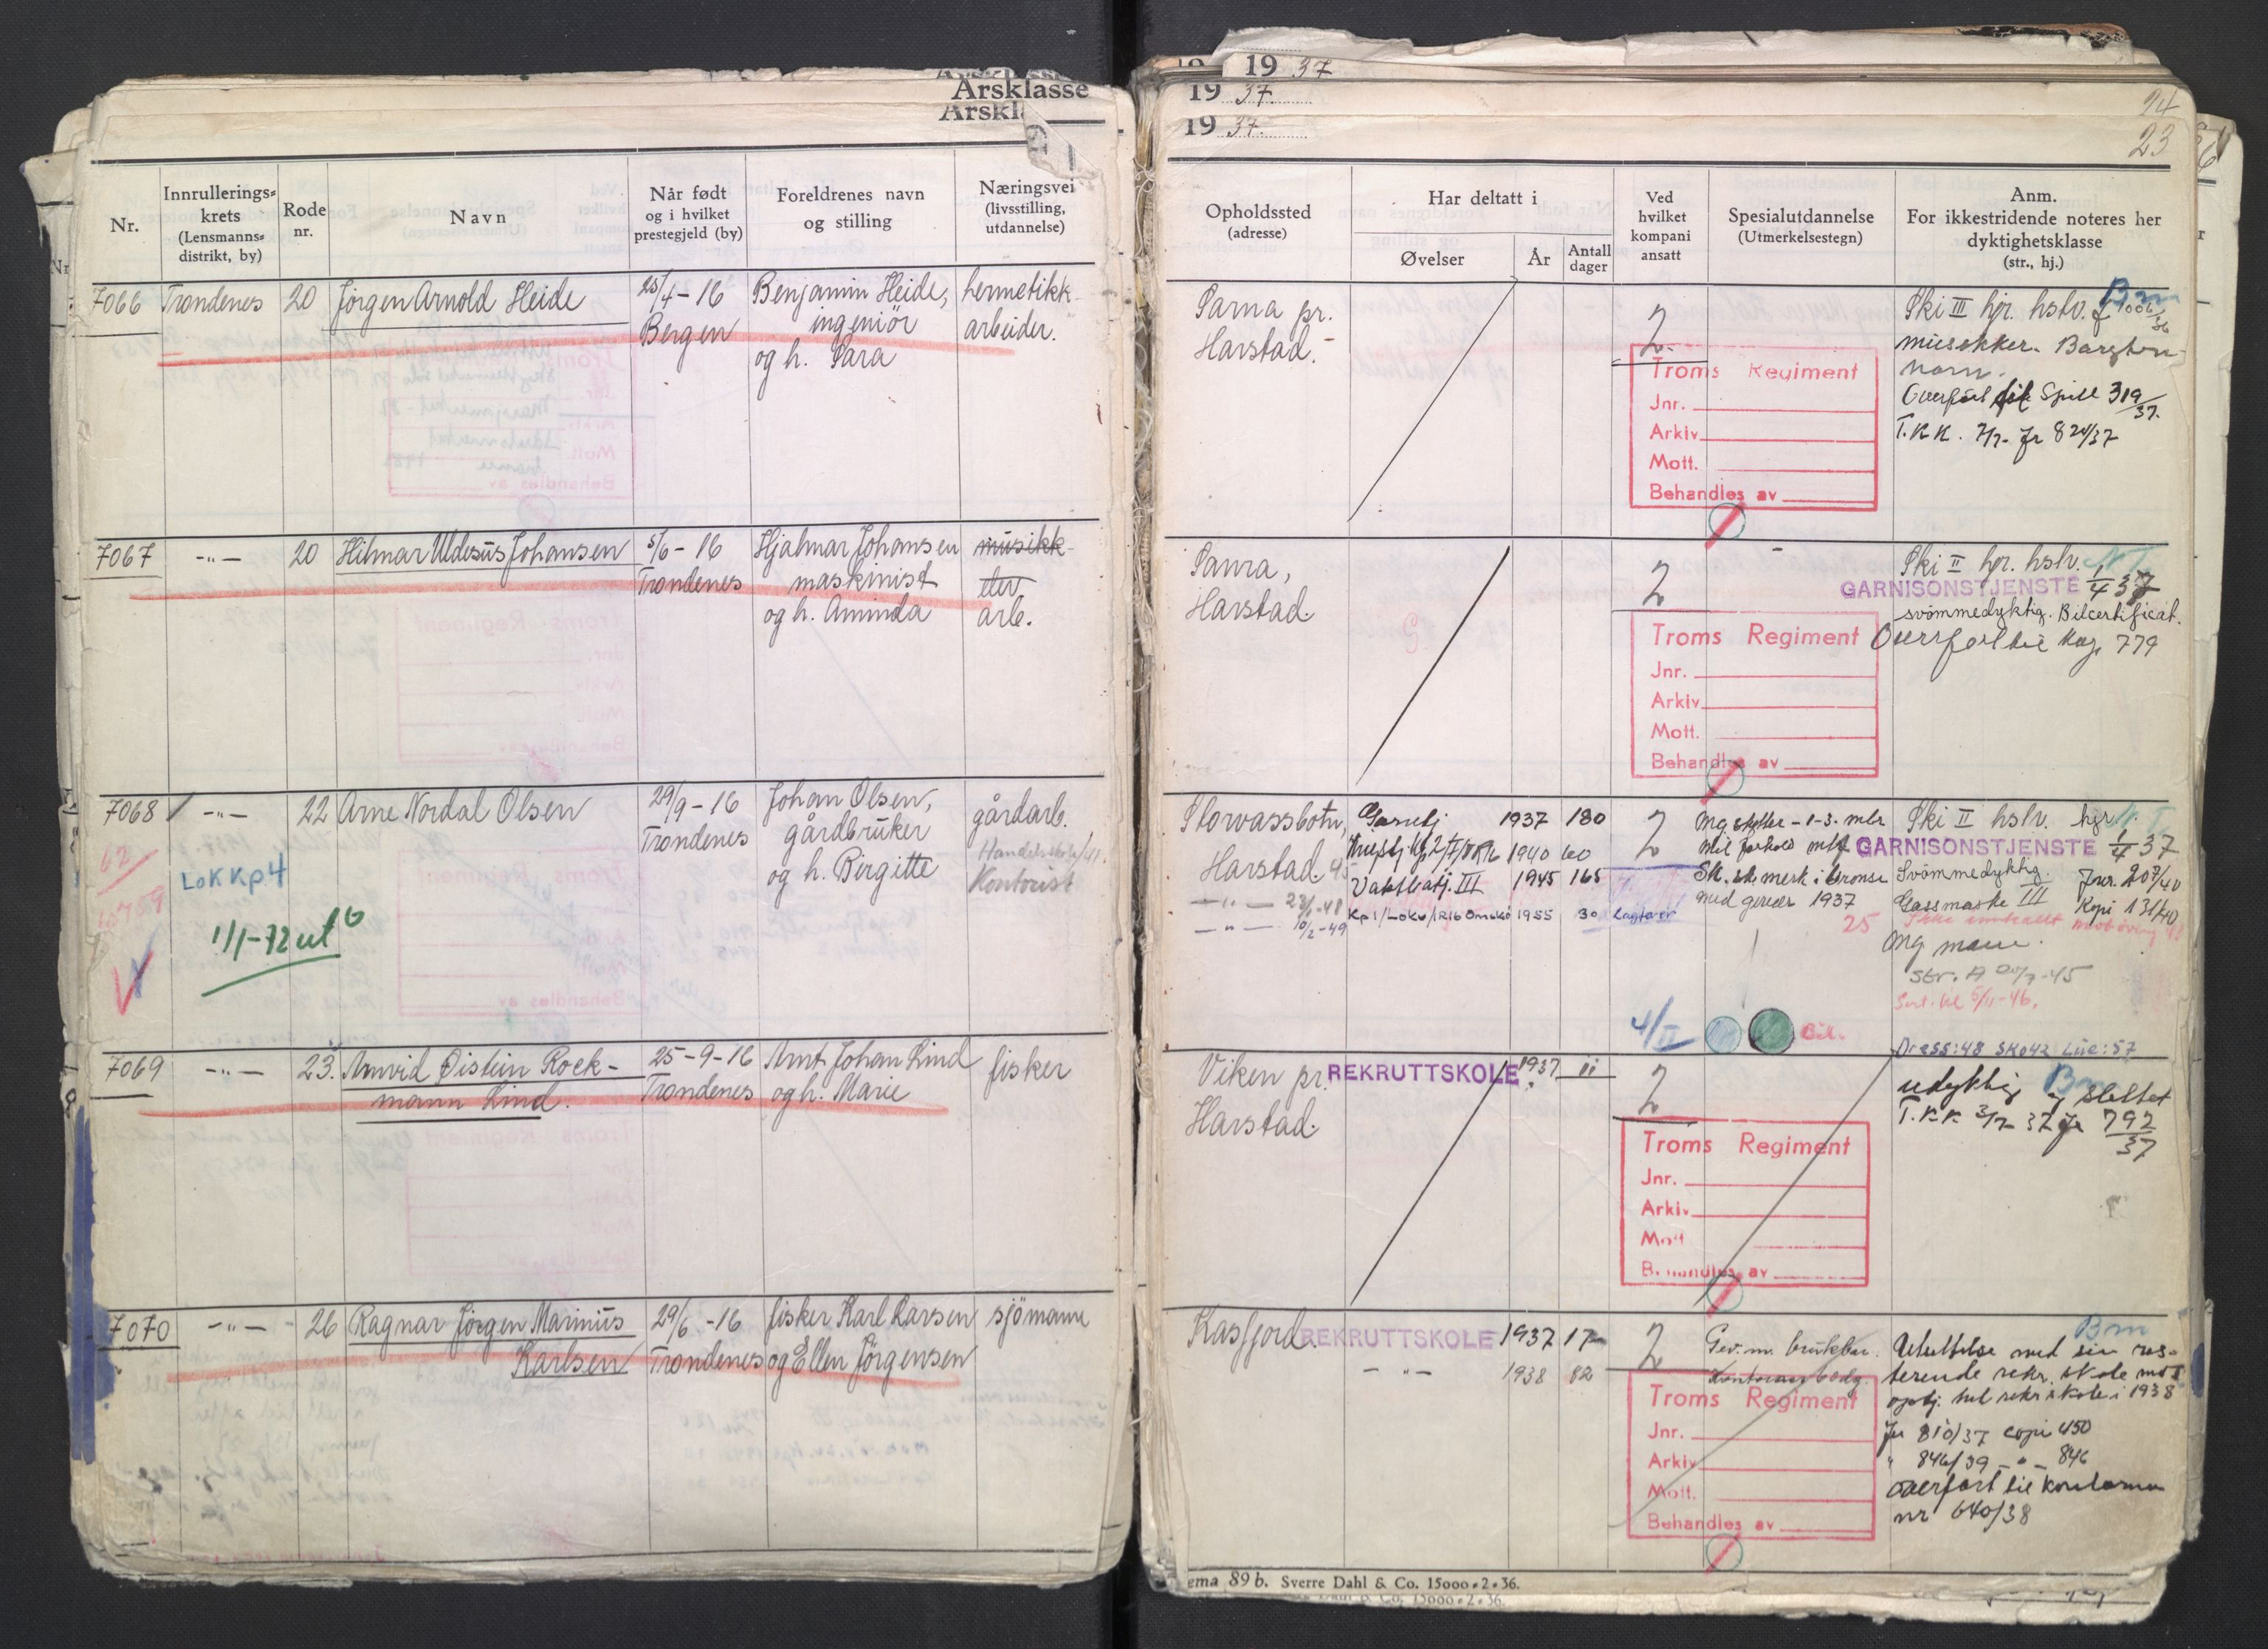 Årsklasse
Årskl
19 37
19 37.
19 37.
24
23
Nr.
Innrullerings-
krets
(Lensmanns-
distrikt, by)
Rode
nr.
Navn
Når født
og i hvilket
prestegjeld (by)
Foreldrenes navn
og stilling
Næringsvei
(livsstilling,
utdannelse)
Opholdssted
(adresse)
Har deltatt i
Øvelser
År
Antall
dager
Ved
hvilket
kompani
ansatt
Spesialutdannelse
(Utmerkelsestegn)
Anm.
For ikkestridende noteres her
dyktighetsklasse
(str., hj.)
7066 Trondenes 20 Jörgen Arnold Heide
25/4-16
Bergen
Benjamin Heide,
ingeniör
og h. Sara
hermetikk-
arbeider.
Sama pr.
Harstad.
2
Troms Regiment
Jnr.
Arkiv
Mott.
Behandles av
Ski III hjr. hslv.
Bm
Overført til Spill 319/37.
T.K.K. 7/7- Jr 820/37
7067 -"- 20 Hilmar Aldesüs Johansen
5/6-16
Trondenes
Hjalmar Johansen
maskinist
og h. Aminda
musikk-
elev
arb.
Sama,
Harstad.
2
Troms Regiment
Jnr.
Arkiv
Mott.
Behandles av
Ski II hjr. hslv.
GARNISONSTJENSTE 1/4 37
svömmedyktig. Bilcertificat.
Overført til Kag. 779
7068 -"- 22 Arne Nordal Olsen
62
LOK Kp 4
1/1-72 ut
29/9-16
Trondenes
Johan Olsen,
gårdbrüker
og h. Birgitte
gårdarb.
Handelsskole/41.
Kontorist
Storvassbotn,
Harstad. 45
-"- 23/1-48
-"- 10/2-49
Garntj 1937 180
1940 60
Vaktbatj. III 1945 165
1955 30 Lagfører
2
4/II
Mg. skytter-1-3. mbr
Sk. sk. merk i bronse
med gevær 1937
25
Bil.
Ski II hslv. hjr
GARNISONSTJENSTE 1/4 37
Svömmedyktig. Jnr. 207/40
Gassmaske III Kopi 131/40
Ikke innkalt
Mg mann.
Str. A 20/7-45
5/11-46.
Dress:48 Sko42 Lue:57
7069 -"- 23. Arnvid Öistein Rock-
mann Lind.
25-9-16
Trondenes
Arnt Johan Lind
og h. Marie
fisker
Viken pr.
Harstad.
REKRUTTSKOLE 1937 11
2
Troms Regiment
Jnr.
Arkiv
Mott
Behandles av
udyktig Bm og slettet
T.K.K. 3/7- 37 Jr 792/37
7070 -"- 26 Ragnar Jörgen Marinüs
Karlsen
29/6-16
Trondenes
fisker Karl Larsen
og Ellen Jörgensen
sjömann
Kasfjord.
REKRUTTSKOLE 1937 17
-"- 1938 82
2
Gev. m. brükbar.
Troms Regiment
Jnr.
Arkiv
Mott.
Behandles av
Bm
Utsettelse med sin res-
terende rekr. skole mot
opstj. ved rekrskole i 1938
Jnr 810/37 copi 450
" 846/39 -"- 846
overført til
nr 640/38
ema 89 b. Sverre Dahl & Co. 15000-2-36.
Dahl & Co. 15000-2-36.